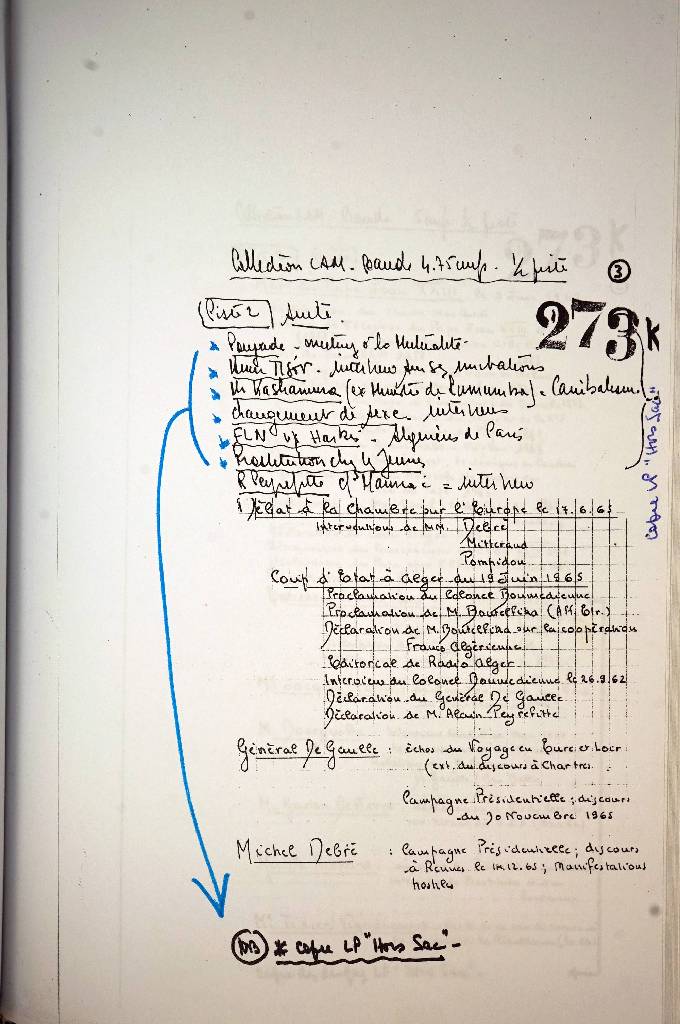 Collection CAM. Bande 4.75 cm/s. ½ piste
3
273K
Piste 2 Suite.
* Poujade - meeting à la Mutualité.
* interview sur ses
* M Kashamura (ex Ministre de Lumumba) = Canibalisme
* changement de sexe - interviews
* FLN Harkis - Algériens de Paris
* Prostitution chez les Jeunes
R Peyrefitte = interview
Débat à la chambre sur l'Europe le 17.6.65
Interventions de MM. Debré
Mitterand
Pompidou
Coup d'Etat à Alger du 19 Juin 1965
Proclamation du Colonel Boumedienne
Proclamation de M. Boutéflika (Aff. Etr.)
Déclaration de M. Boutéflika sur la coopération
Franco Algérienne
Editorial de Radio Alger
Interview du Colonel Boumedienne le 26.9.62
Déclaration du Général De Gaulle
Déclaration de M. Alain Peyrefitte
Général De Gaulle : échos du Voyage en Eure et Loir
(ext. du discours à Chartres
Campagne Présidentielle ; discours
du 30 Novembre 1965
Michel Debré : Campagne Présidentielle ; discours
à Rennes le 12.65 ; Manifestations
hostiles
NB * copie LP "Hors Sac"-
copie LP "Hors Sac"